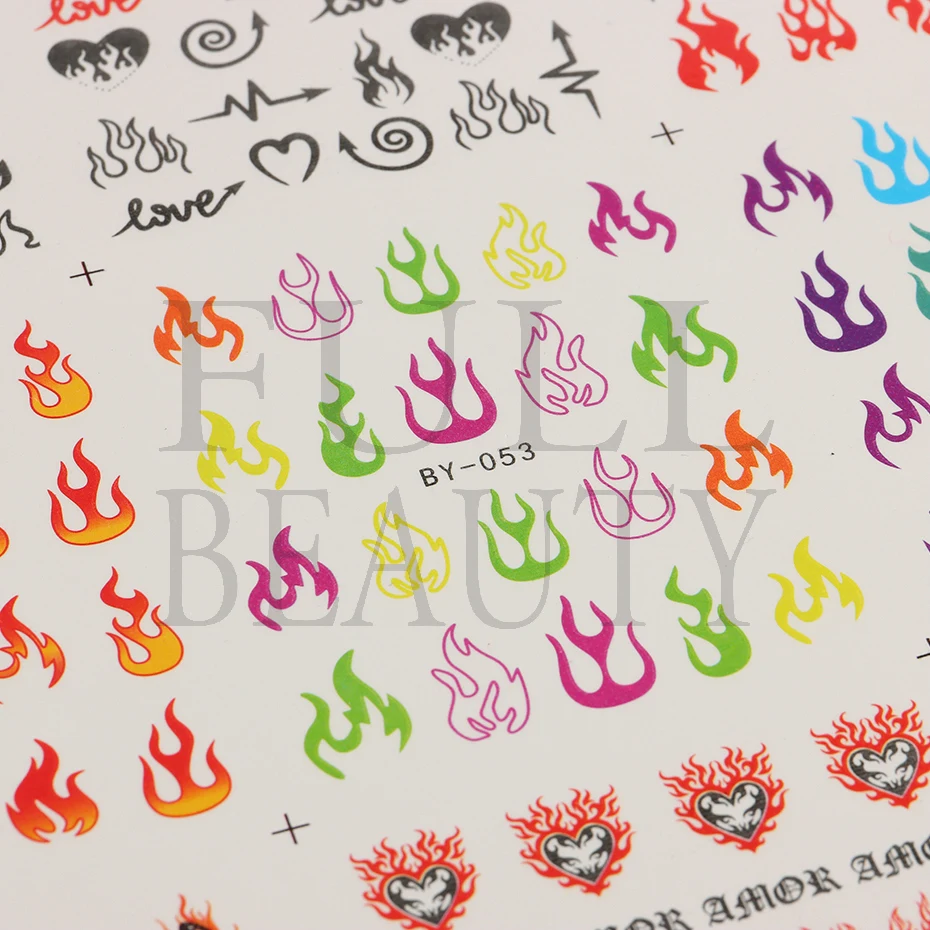 love
love
love
FULL
BEAUTY
BY-053
AMOR AMOR